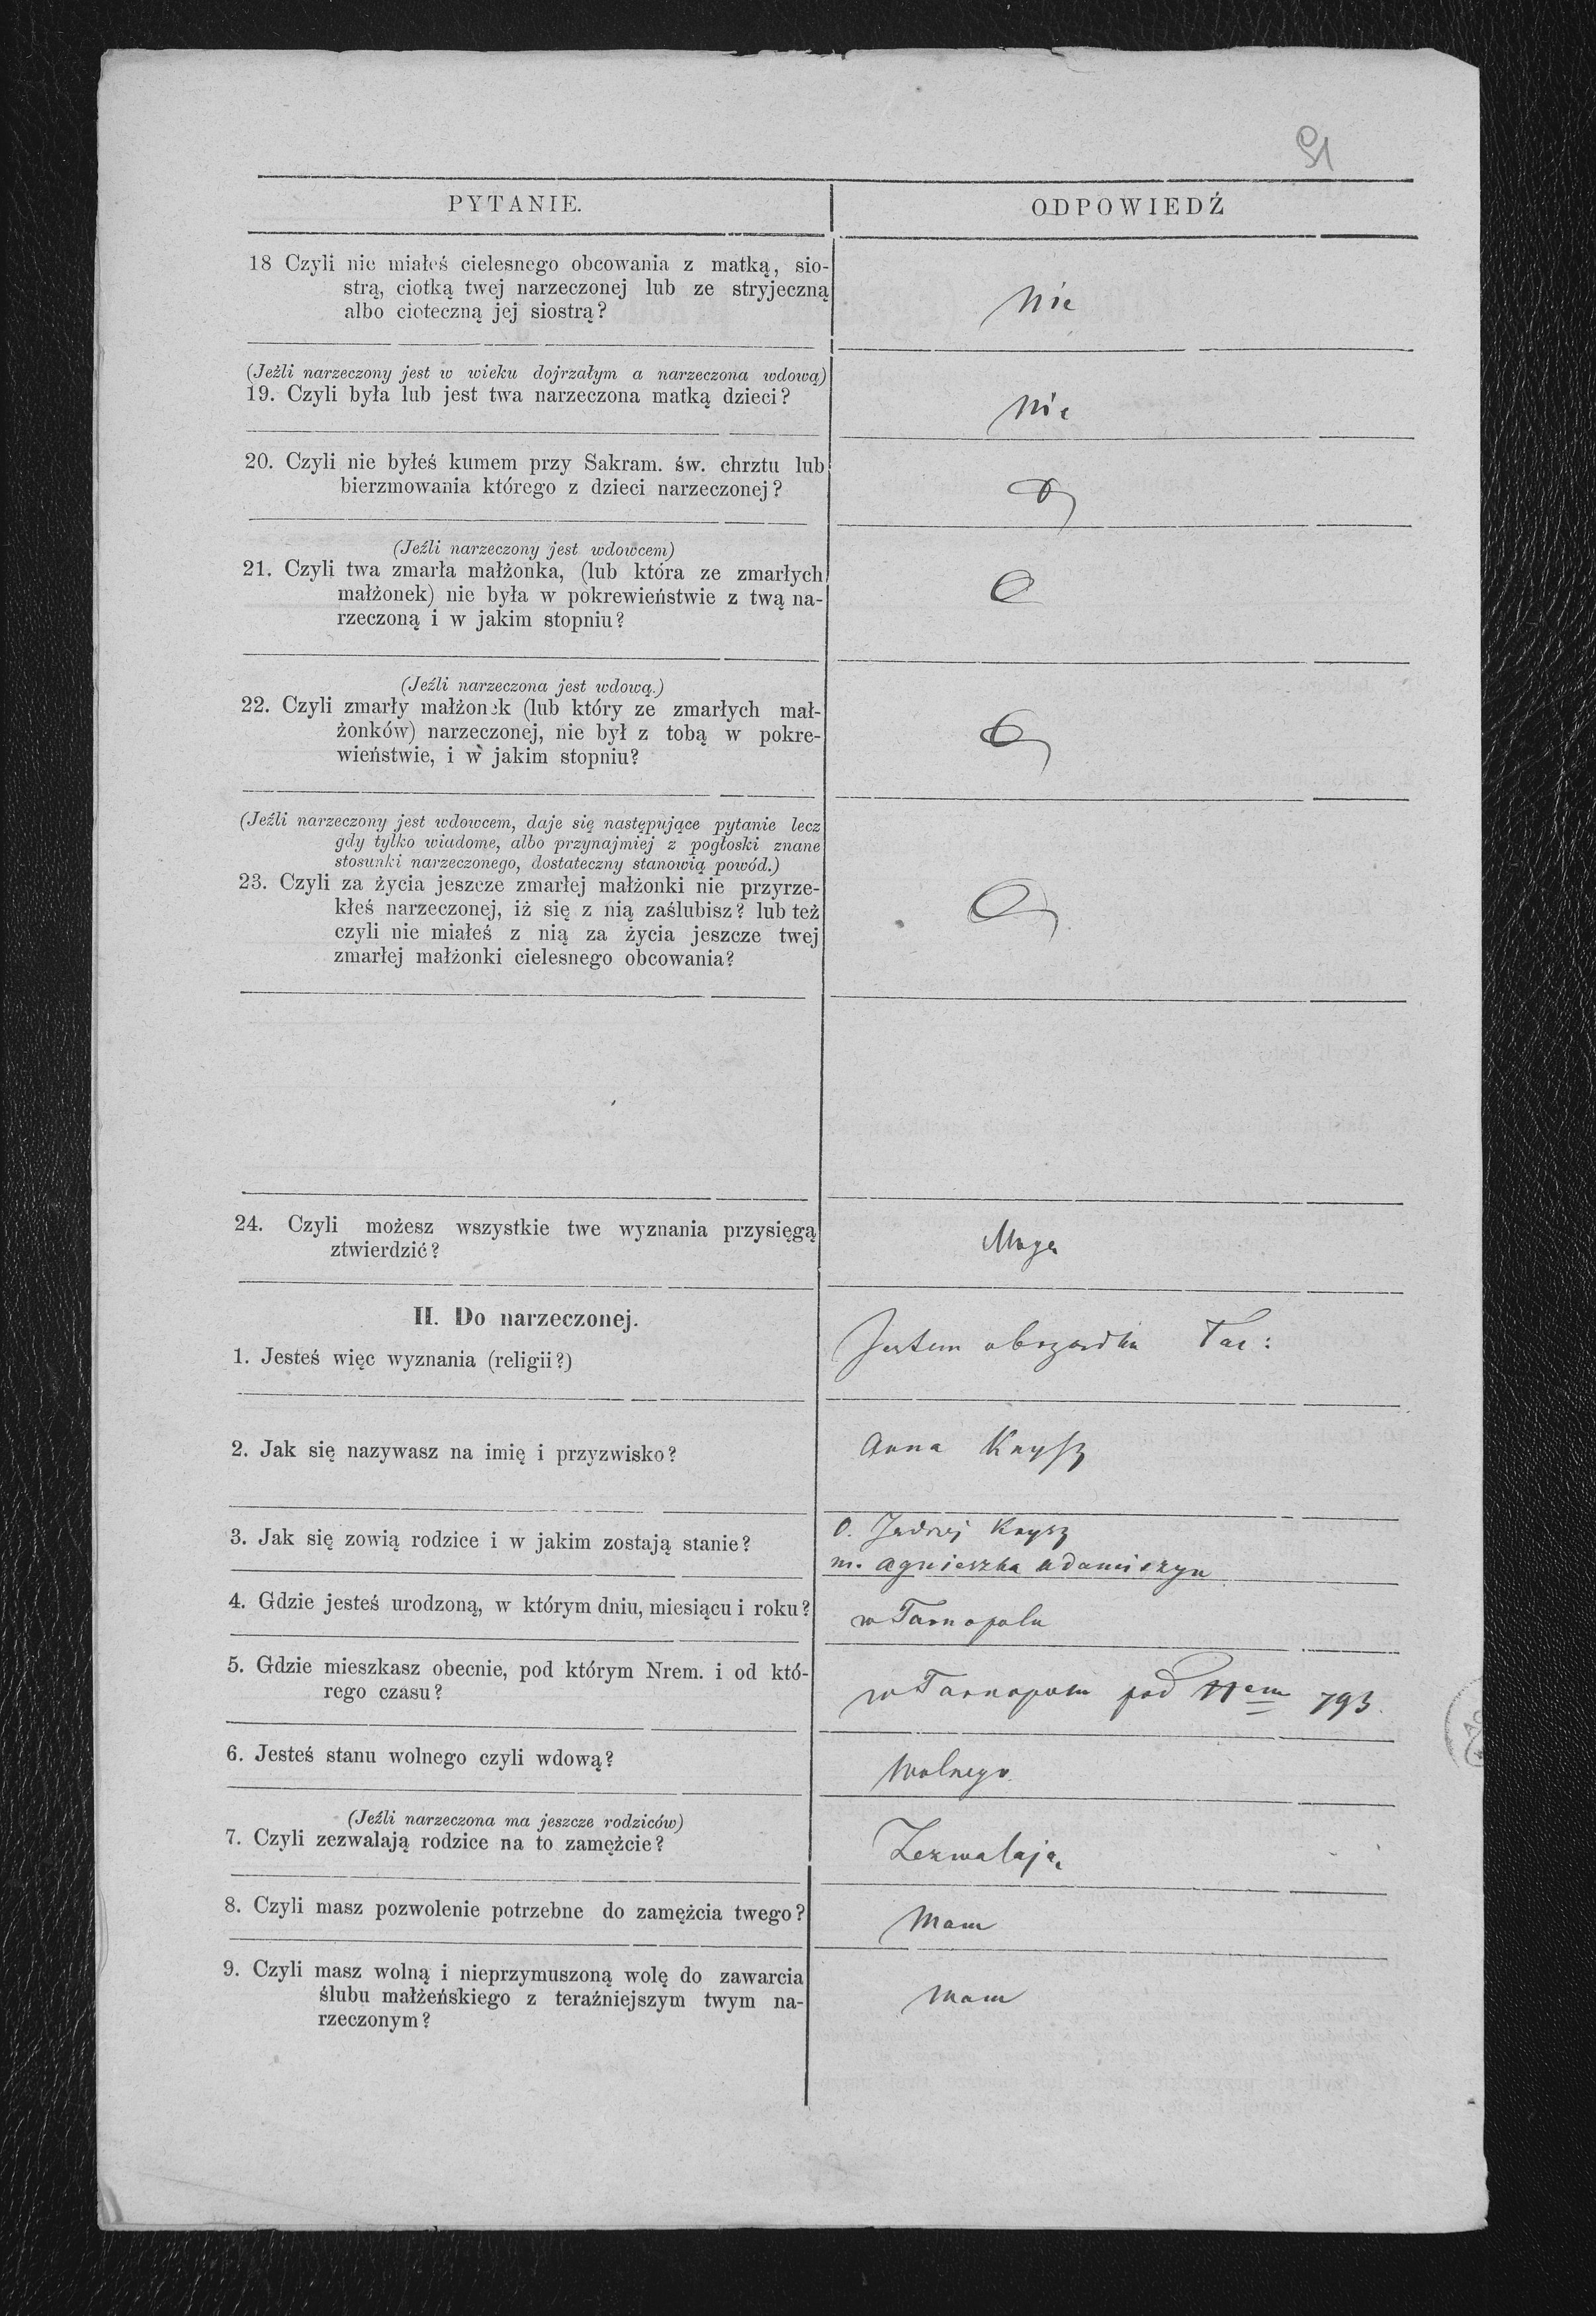 91
PYTANIE.
ODPOWIEDŹ
18 Czyli nie miałeś cielesnego obcowania z matką, sio-
strą, ciotką twej narzeczonej lub ze stryjeczną
albo cioteczną jej siostrą?
Nie
(Jeżli narzeczony jest w wieku dojrzałym a narzeczona wdową)
19. Czyli była lub jest twa narzeczona matką dzieci?
Nie
20. Czyli nie byłeś kumem przy Sakram. św. chrztu lub
bierzmowania którego z dzieci narzeczonej?
(Jeźli narzeczony jest wdowcem)
21. Czyli twa zmarła małżonka, (lub która ze zmarłych
małżonek) nie była w pokrewieństwie z twą na-
rzeczoną i w jakim stopniu?
(Jeźli narzeczona jest wdową.)
22. Czyli zmarły małżonek (lub który ze zmarłych mał-
żonków) narzeczonej, nie był z tobą w pokre-
wieństwie, i w jakim stopniu?
(Jeźli narzeczony jest wdowcem, daje się następujące pytanie lecz
gdy tylko wiadome, albo przynajmiej z pogłoski znane
stosunki narzeczonego, dostateczny stanowią powód.)
23. Czyli za życia jeszcze zmarłej małżonki nie przyrze-
kłeś narzeczonej, iż się z nią zaślubisz? lub też
czyli nie miałeś z nią za życia jeszcze twej
zmarłej małżonki cielesnego obcowania?
24. Czyli możesz wszystkie twe wyznania przysięgą
ztwierdzić?
Mogę
II. Do narzeczonej.
1. Jesteś więc wyznania (religii?)
Jestem obrządku Łac:
2. Jak się nazywasz na imię i przyzwisko?
Anna Krysz
3. Jak się zowią rodzice i w jakim zostają stanie?
O. Jędrzej Krysz
m. Agnieszka Adamiszyn
4. Gdzie jesteś urodzoną, w którym dniu, miesiącu i roku?
w Tarnopolu
5. Gdzie mieszkasz obecnie, pod którym Nrem. i od któ-
rego czasu?
w Tarnopolu pod Nem 793.
6. Jesteś stanu wolnego czyli wdową?
Wolnego.
(Jeźli narzeczona ma jeszcze rodziców)
7. Czyli zezwalają rodzice na to zamęźcie?
Zezwalają
8. Czyli masz pozwolenie potrzebne do zamęźcia twego?
Mam
9. Czyli masz wolną i nieprzymuszoną wolę do zawarcia
ślubu małżeńskiego z teraźniejszym twym na-
rzeczonym?
Mam